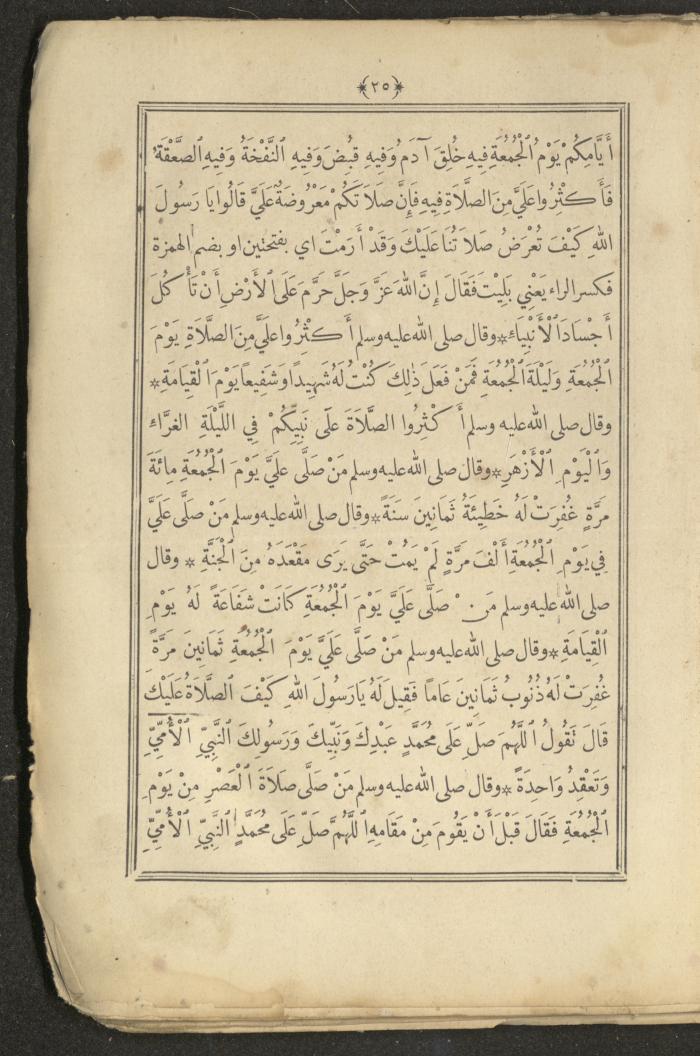 ﴿٢٥﴾
أَيَّامِكُمْ يَوْمُ ٱلْجُمُعَةِ فِيهِ خُلِقَ آدَمُ وَفِيهِ قُبِضَ وَفِيهِ ٱلنَّفْخَةُ وَفِيهِ ٱلصَّعْقَةُ
فَأَكْثِرُوا عَلَيَّ مِنَ الصَّلَاةِ فِيهِ فَإِنَّ صَلَاتَكُمْ مَعْرُوضَةٌ عَلَيَّ قَالُوا يَا رَسُولَ
اللهِ كَيْفَ تُعْرَضُ صَلَاتُنَا عَلَيْكَ وَقَدْ أَرَمْتَ اي بفتحتين او بضم الهمزة
فكسر الراء يَعْنِي بَلِيْتَ فَقَالَ إِنَّ اللهَ عَزَّ وَجَلَّ حَرَّمَ عَلَى ٱلْأَرْضِ أَنْ تَأْكُلَ
أَجْسَادَ ٱلْأَنْبِيَاءِ * وقال صلى الله عليه وسلم أَكْثِرُوا عَلَيَّ مِنَ الصَّلَاةِ يَوْمَ
ٱلْجُمُعَةِ وَلَيْلَةَ ٱلْجُمُعَةِ فَمَنْ فَعَلَ ذٰلِكَ كُنْتُ لَهُ شَهِيدًا وَشَفِيعًا يَوْمَ ٱلْقِيَامَةِ *
وقال صلى الله عليه وسلم أَكْثِرُوا الصَّلَاةَ عَلَى نَبِيِّكُمْ فِي اللَّيْلَةِ الغَرَّاءِ
وَٱلْيَوْمِ ٱلْأَزْهَرِ * وقال صلى الله عليه وسلم مَنْ صَلَّى عَلَيَّ يَوْمَ ٱلْجُمُعَةِ مِائَةَ
مَرَّةٍ غُفِرَتْ لَهُ خَطِيئَةُ ثَمَانِينَ سَنَةً * وقال صلى الله عليه وسلم مَنْ صَلَّى عَلَيَّ
فِي يَوْمِ ٱلْجُمُعَةِ أَلْفَ مَرَّةٍ لَمْ يَمُتْ حَتَّى يَرَى مَقْعَدَهُ مِنَ ٱلْجَنَّةِ * وقال
صلى الله عليه وسلم مَنْ صَلَّى عَلَيَّ يَوْمَ ٱلْجُمُعَةِ كَانَتْ شَفَاعَةً لَهُ يَوْمِ
ٱلْقِيَامَةِ * وقال صلى الله عليه وسلم مَنْ صَلَّى عَلَيَّ يَوْمَ ٱلْجُمُعَةِ ثَمَانِينَ مَرَّةً
غُفِرَتْ لَهُ ذُنُوبُ ثَمَانِينَ عَامًا فَقِيلَ لَهُ يَا رَسُولَ اللهِ كَيْفَ ٱلصَّلَاةُ عَلَيْكَ
قَالَ تَقُولُ ٱللَّهُمَّ صَلِّ عَلَى مُحَمَّدٍ عَبْدِكَ وَنَبِيِّكَ وَرَسُولِكَ ٱلنَّبِيِّ ٱلْأُمِّيِّ
وَتَعْقِدُ وَاحِدَةً * وقال صلى الله عليه وسلم مَنْ صَلَّى صَلَاةَ ٱلْعَصْرِ مِنْ يَوْمِ
ٱلْجُمُعَةِ فَقَالَ قَبْلَ أَنْ يَقُومَ مِنْ مَقَامِهِ ٱللَّهُمَّ صَلِّ عَلَى مُحَمَّدٍ ٱلنَّبِيِّ ٱلْأُمِّيِّ